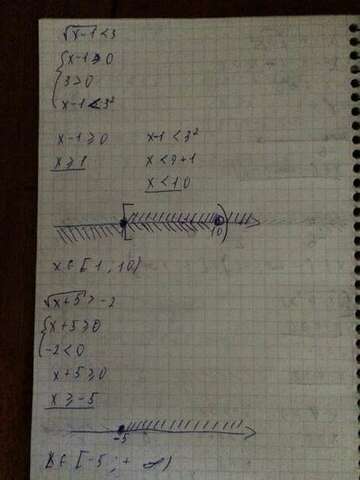 √x-1 < 3
{x-1 ≥ 0
{3 > 0
{x-1 < 3²
x-1 ≥ 0 x-1 < 3²
x ≥ 1 x < 9+1
x < 10
[ 10 )
x ∈ [1, 10)
√x+5 > -2
{x+5 ≥ 0
{-2 < 0
x+5 ≥ 0
x ≥ -5
-5
x ∈ [-5; +∞)